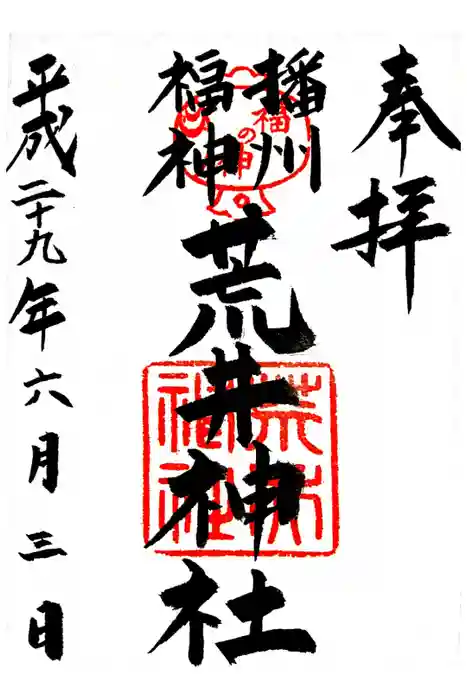 奉拝
播州
福神
荒井神社
平成二十九年六月三日
福の神
荒井神社